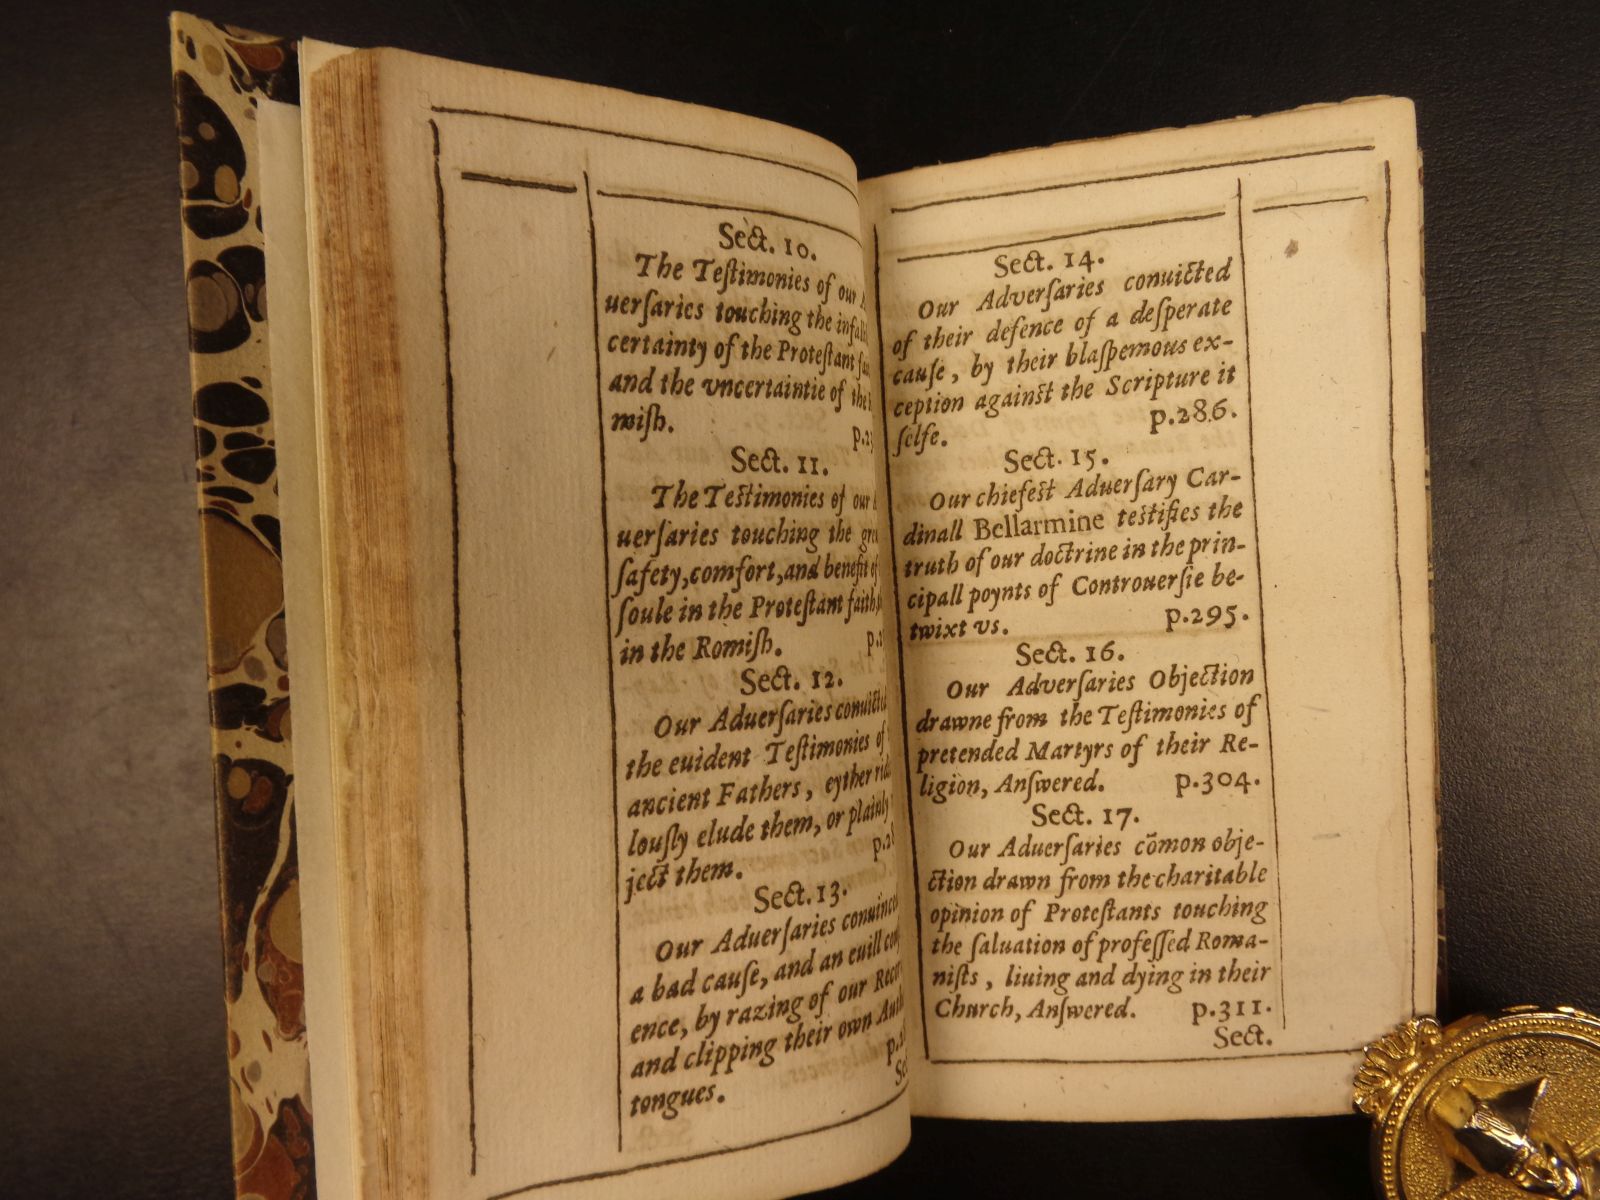 Sect. 10.
The Teſtimonies of our
uerſaries touching the
certainty of the Proteſtant
and the vncertaintie of the
miſh.
Sect. 11.
The Teſtimonies of our
uerſaries touching the
ſafety, comfort, and benefit of
ſoule in the Proteſtant faith,
in the Romiſh.
Sect. 12.
Our Aduerſaries conuicted
the euident Teſtimonies of
ancient Fathers, eyther
louſly elude them, or plainly
ject them.
Sect. 13.
Our Aduerſaries
a bad cauſe, and an euill
ence, by razing of our
and clipping their own
tongues.
Sect. 14.
Our Adverſaries conuicted
of their defence of a deſperate
cauſe, by their blaſpemous ex-
ception againſt the Scripture it
ſelfe. p.286.
Sect. 15.
Our chiefeſt Aduerſary Car-
dinall Bellarmine teſtifies the
truth of our doctrine in the prin-
cipall poynts of Controuerſie be-
twixt vs. p.295.
Sect. 16.
Our Adverſaries Objection
drawne from the Teſtimonies of
pretended Martyrs of their Re-
ligion, Anſwered. p.304.
Sect. 17.
Our Aduerſaries cõmon obje-
ction drawn from the charitable
opinion of Proteſtants touching
the ſaluation of profeſſed Roma-
niſts, liuing and dying in their
Church, Anſwered. p.311.
Sect.